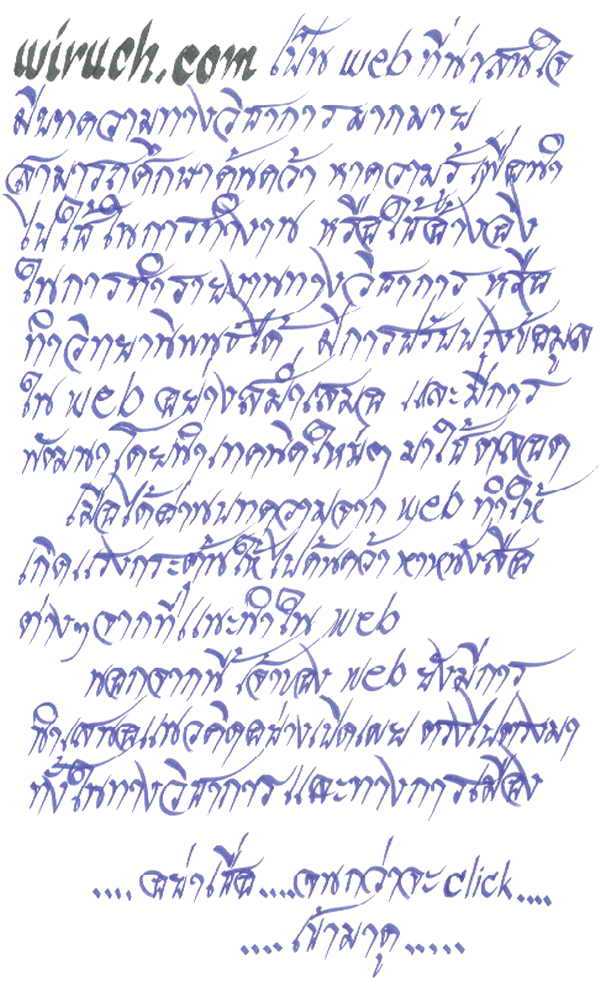 wiruch.com เป็น web ที่น่าสนใจ
มีบทความทางวิชาการมากมาย
สามารถศึกษาค้นคว้า หาความรู้ เพื่อนำ
ไปใช้ในการทำงาน หรือใช้อ้างอิง
ในการทำรายงานทางวิชาการ หรือ
ทำวิทยานิพนธ์ได้ มีการปรับปรุงข้อมูล
ใน web อย่างสม่ำเสมอ และมีการ
พัฒนาโดยนำเทคนิคใหม่ๆ มาใช้ตลอด
เมื่อได้อ่านบทความจาก web ทำให้
เกิดแรงกระตุ้นให้ไปค้นคว้า หาหนังสือ
ต่างๆจากที่แนะนำใน web
นอกจากนี้ เจ้าของ web ยังมีการ
นำเสนอแนวคิดอย่างเปิดเผย ตรงไปตรงมา
ทั้งในทางวิชาการและทางการเมือง
....อย่าเชื่อ....จนกว่าจะ click....
....เข้ามาดู.....